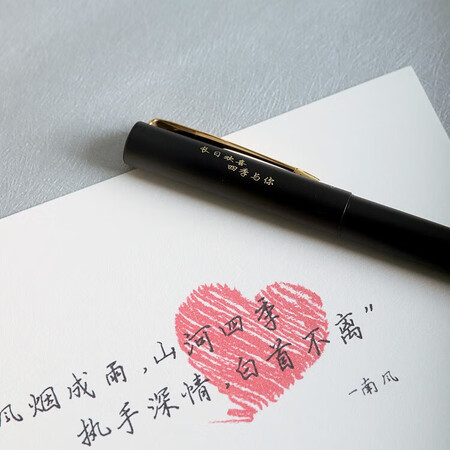 长日欢喜
四季与你
风烟成雨，山河四季
执手深情，白首不离”
-南风